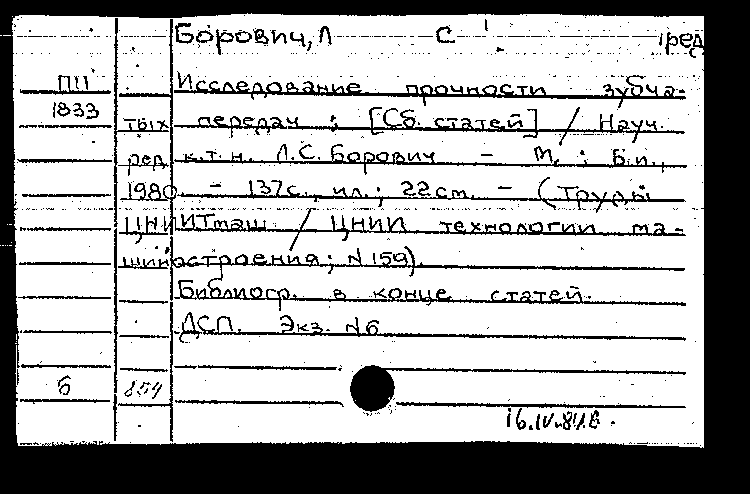 Борович, Л С ред
ПП Исследование прочности зубча-
1833 тых передач ; [Сб. статей] / Науч.
ред. к.т.н. Л.С. Борович - М. ; Б.и.,
1980. - 137с., ил.; 22см. - (Труды
ЦНИИТмаш / ЦНИИ технологии ма-
шиностроения; N 159).
Библиогр. в конце статей.
ДСП. Экз. N6
б 854
16.IV.81